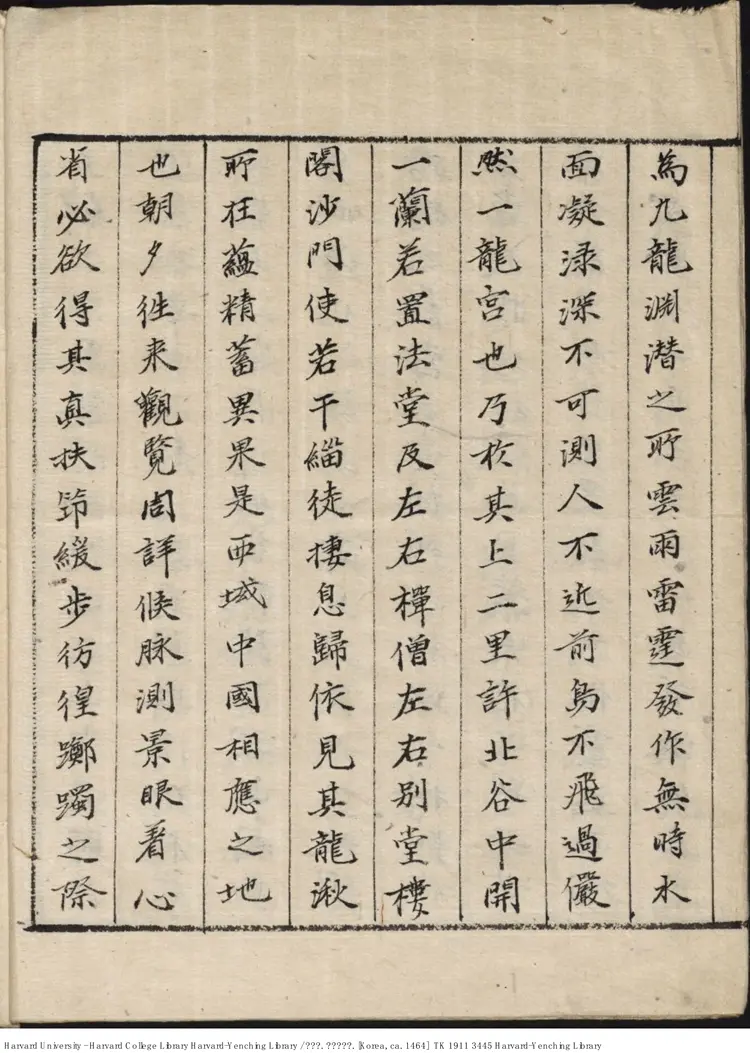 為九龍淵潛之所雲雨雷霆發作無時水
面凝渌深不可測人不近前鳥不飛過儼
然一龍宮也乃於其上二里許北谷中開
一蘭若置法堂及左右禪僧左右別堂樓
閣沙門使若干緇徒捿息歸依見其龍湫
所在蘊精蓄異果是西域中國相應之地
也朝夕徃来觀覧周詳候脉測景眼着心
省必欲得其真扶筇緩步彷徨躑躅之際
Harvard University - Harvard College Library Harvard-Yenching Library / ???. ?????. [Korea, ca. 1464] TK 1911 3445 Harvard-Yenching Library